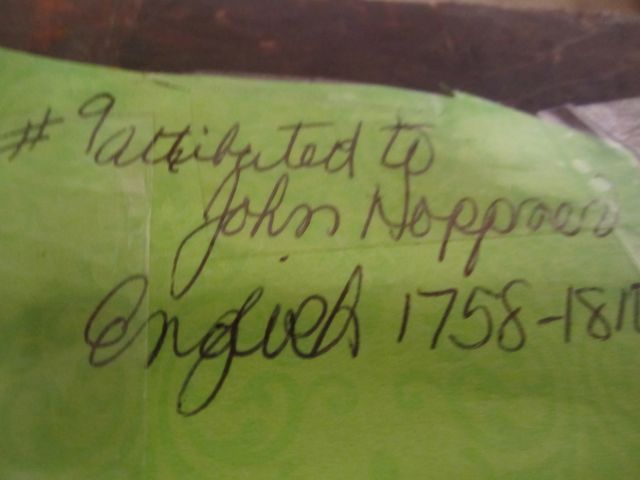 #9 attributed to
John Hoppner
English 1758-181